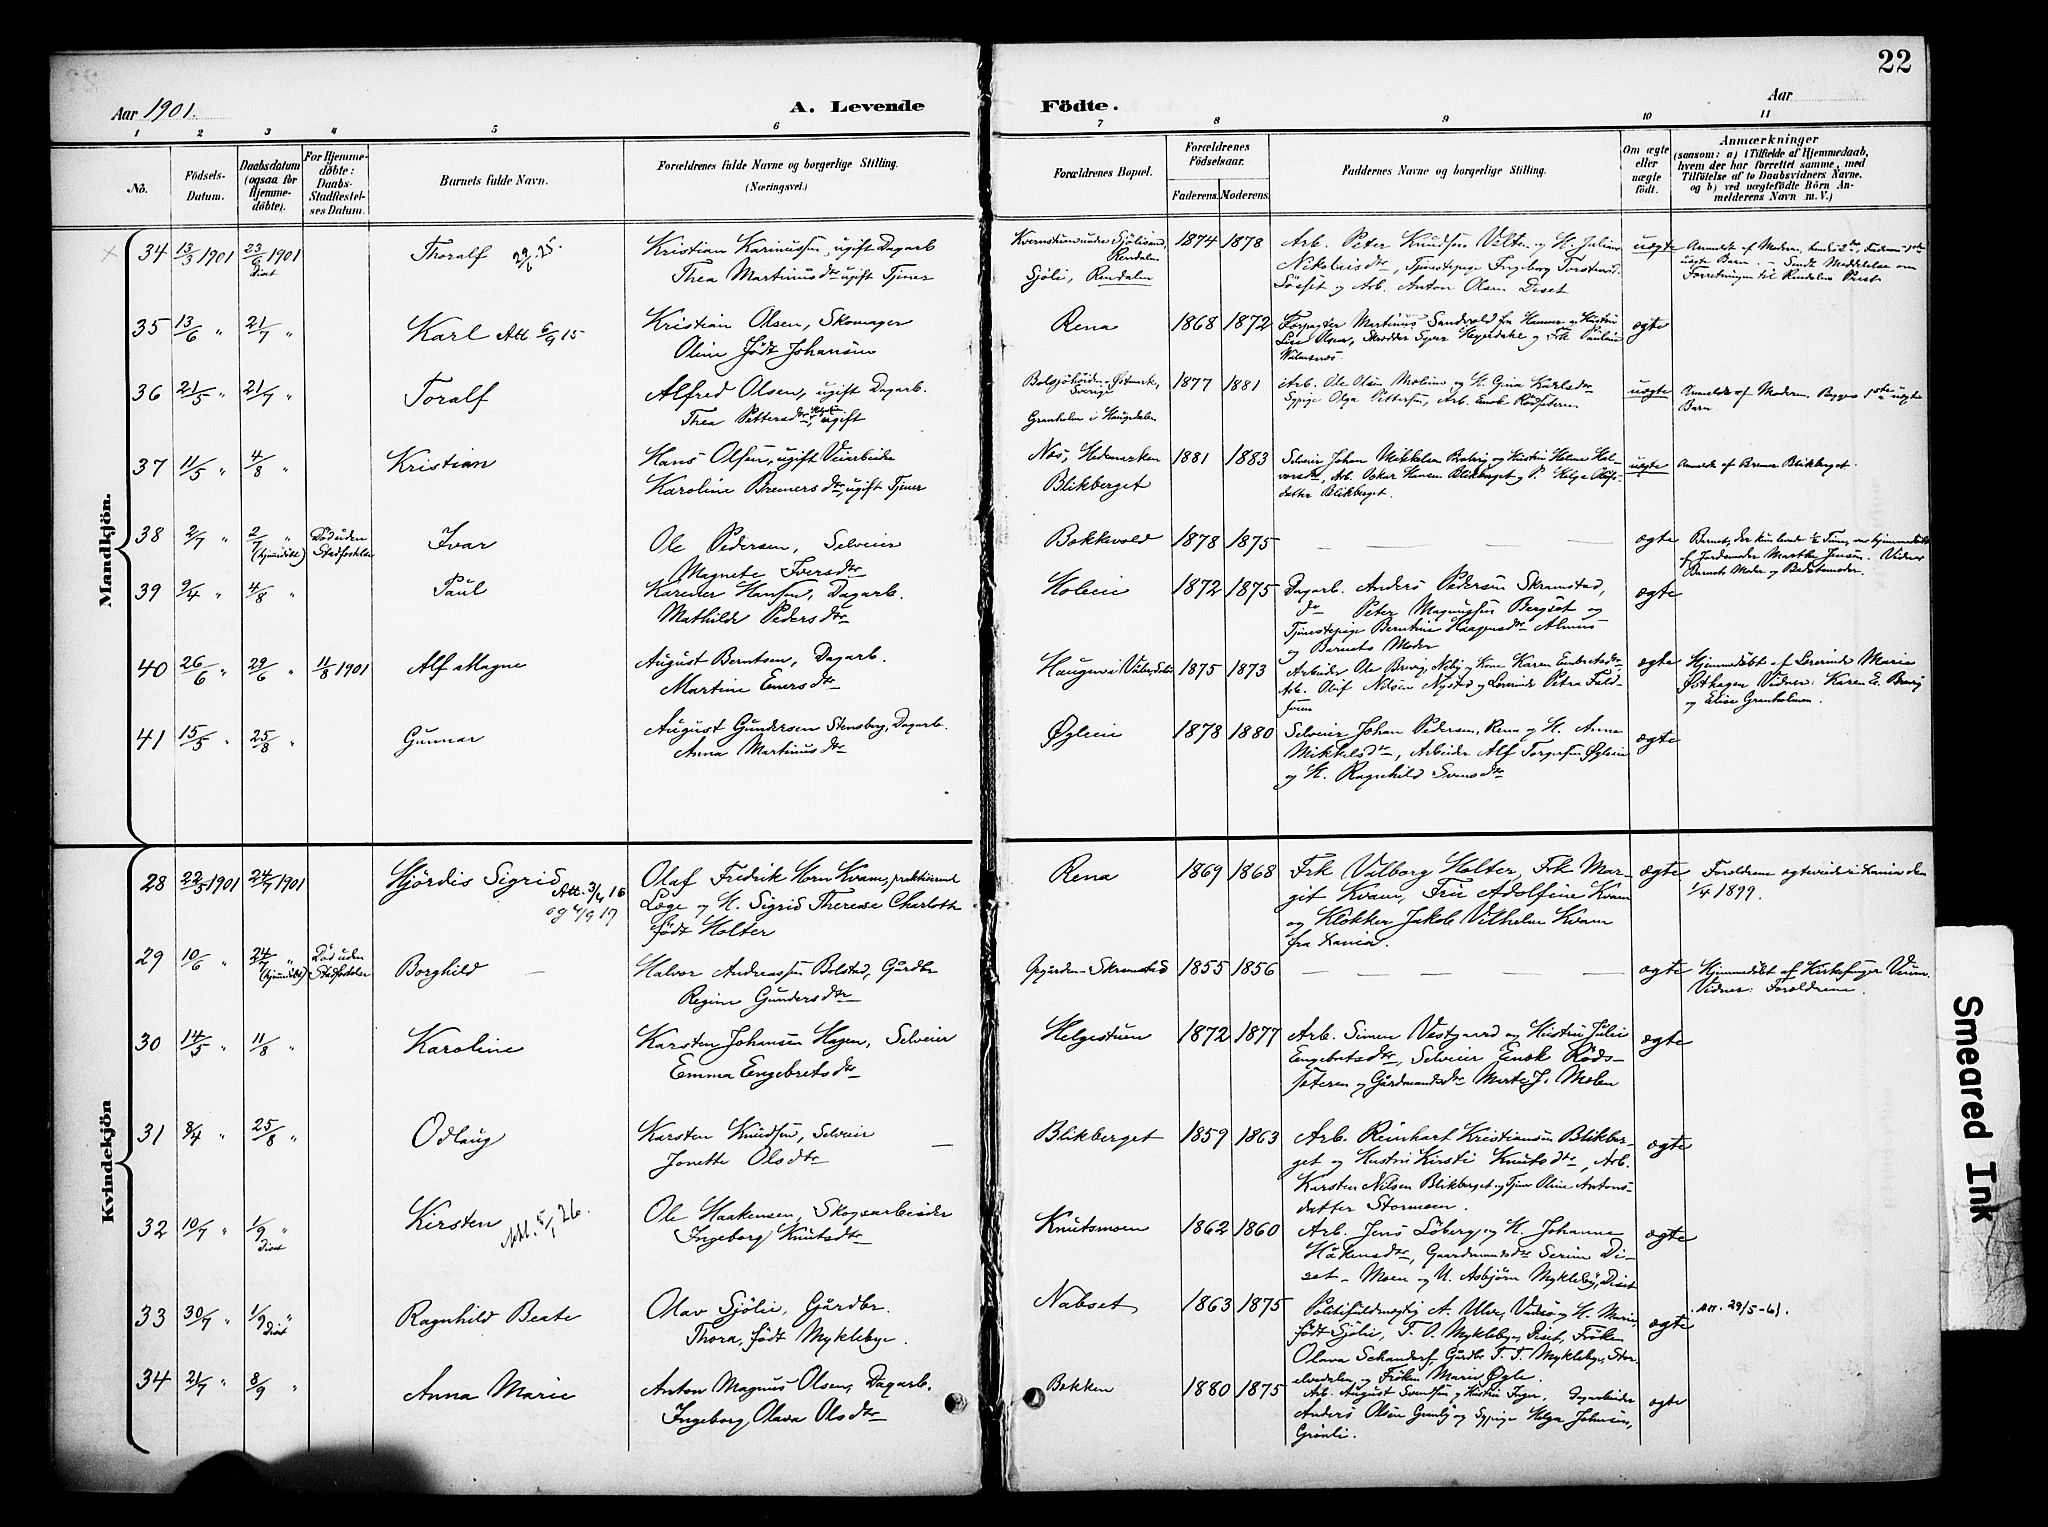 22
Aar 1901.
A. Levende Födte.
Aar
1 2 3 4 5 6 7 8 9 10 11
No.
Födsels-Datum.
Daabsdatum (ogsaa for Hjemmedöbte).
For Hjemmedöbte: Daabs-Stadfæstelses Datum.
Barnets fulde Navn.
Forældrenes fulde Navne og borgerlige Stilling. (Næringsvei.)
Forældrenes Bopæl.
Forældrenes Födselsaar.
Faderens. Moderens.
Faddernes Navne og borgerlige Stilling.
Om ægte eller uægte födt.
Anmærkninger
(saasom: a) i Tilfælde af Hjemmedaab,
hvem der har forrettet samme, med
Tilföielse af to Daabsvidners Navne.
og b) ved uægtefödte Börn An-
melderens Navn m. V.)
Mandkjön.
34 13/3 1901 23/6 1901 Diset Thoralf 29/6 25.
Kristian Karinussen, ugift Dagarb
Thea Martinusdtr ugift Tjener
Sjöli, Rendalen
1874 1878
Arb. Peter Knudsen Velten og H. Juliane
Nikolaisdtr, Tjenestepige Ingeborg Torstensd.
og Arb. Anton Olsen Diset
uægte
35 13/6 " 21/7 " Karl Att. 6/9 15
Kristian Olsen, Skomager
Oline födt Johansen
Rena 1868 1872
Forpagter Martinus Sandvold fra Hamar og Hustru
ægte
36 21/5 " 21/7 " Toralf
Alfred Olsen, ugift Dagarb.
Thea Pettersdtr, ugift
Granholm i Haugedalen
1877 1881
Arb. Ole Olsen Moelien og H. Gina Karlsdtr
Sypige Olga Pettersen, Arb. Enok Rödseteren
uægte
Anmeldt af Moderen. Begges 1ste uægte
Barn
37 11/5 " 4/8 " Kristian
Hans Olsen, ugift Veiarbeider
Karoline Bremersdtr, ugift Tjener
Næs, Hedemarken
Blikberget
1881 1883
Selveier Johan Mikkelsen Bratvig og Hustru Helene Hal-
vorsdtr, Arb. Oskar Hansen Blikberget og P. Helga Olufs-
datter Blikberget.
uægte
Anmeldt af Bremer Blikberget.
38 2/7 " 2/7 " (hjemmedöbt) Död uden Stadfæstelse Ivar
Ole Pedersen, Selveier
Magnete Iversdtr
Bakkevold 1878 1875
— — — —
ægte
Barnet, der kun levde ½ Time, var hjemmedöbt
af Jordemoder Marthe Jensen. Vidner
Barnets Moder og Bedstemoder.
39 9/4 " 4/8 " Paul
Karener Hansen, Dagarb.
Mathilde Pedersdtr
Holeie 1872 1875
Dagarb. Anders Pedersen Skramstad,
do Peter Magnussen Bergset og
Tjenestepige Berntine Haagensdtr Alme
og Barnets Moder
ægte
40 26/6 " 29/6 " 11/8 1901 Alf Magne
August Berntsen, Dagarb.
Martine Emersdtr
1875 1873
Arbeider Ole Brovig, Neby og Kone Karen Embretsdtr,
Arb. Oluf Nilsen Nystad og Lærerinde Petra Fald-
svea
ægte
Hjemmedöbt af Lærerinde Marie
Østhagen Vidner: Karen E. Brovig
og Elise Granholmen.
41 15/5 " 25/8 " Gunnar
August Gundersen Stensberg, Dagarb.
Anna Martinusdtr
Øgleie 1878 1880
Selveier Johan Pedersen, Rena og H. Anna
Mikkelsdtr, Arbeider Alf Torgersen Øgleie
og H. Ragnhild Svensdtr
ægte
Kvindekjön
28 22/5 1901 24/7 1901 Hjördis Sigrid Att. 3/4 16 og 4/9 17
Olaf Fredrik Horn Kvam, praktiserende
Læge og H. Sigrid Therese Charlotte
födt Holter
Rena 1869 1868
Frk Valborg Holter, Frk Mar-
git Kvam, Fru Adolfine Kvam
og Klokker Jakob Vilhelm Kvam
fra
ægte
Forældrene ægteviede i Xania den
1/4 1899.
29 10/6 " 24/7 " (hjemmedöbt) Död uden Stadfæstelse Borghild —
Halvor Andreassen Bolstad, Gårdbr
Regine Gundersdtr
Opgården-Skramstad 1855 1856
— — — —
ægte
Hjemmedöbt af Kirkesanger Veum.
Vidner: Forældrene.
30 14/5 " 11/8 " Karoline
Karsten Johansen Hagen, Selveier
Emma Engebretsdtr
Helgestuen 1872 1877
Arb. Simen Vestgaard og Hustru Julie
Engebretsdtr, Selveier Enok Röds-
seteren og Gårdmandsdtr Marte J. Moen
ægte
31 8/4 " 25/8 " Odlaug
Karsten Knudsen, Selveier —
Jonette Olsdtr
Blikberget 1859 1863
Arb. Reinhart Kristiansen Blikber-
get og Hustru Kirsti Knutsdtr, Arb.
Karsten Nilsen Blikberget og Tjener Oline Antons-
datter Stormoen.
ægte
32 10/7 " 1/9 " Diset Kirsten Att. 5/1 26.
Ole Haakensen, Skogsarbeider
Ingeborg Knutsdtr
Knutsmoen 1862 1860
Arb. Jens Löberg og H. Johanna
Håkensdtr, Gaardmandsdtr Serine Di-
set-Moen og U. Asbjörn Mykleby, Diset
ægte
33 30/7 " 1/9 " Diset Ragnhild Beate
Olav Sjölie, Gårdbr.
Thora, födt Myklebye.
Nabset 1863 1875
Politifuldmægtig A. Ulve, Vadsö og H. Marie,
födt Sjölie, T. O. Myklebye, Diset, Fröken
Olava Schanderf, Gårdbr T. T. Myklebye, Stor-
elvedalen og Fröken Marie Øgle.
ægte
Att. 29/5-61.
34 21/7 " 8/9 " Anna Marie
Anton Magnus Olsen, Dagarb.
Ingeborg Olava Olsdtr
Bakken 1880 1875
Arb. August Svendsen og Hustru Inger, Dagarbeider
Anders Olsen Grønli og Sypige Helga Johnsen,
Grönli.
ægte
Smeared Ink